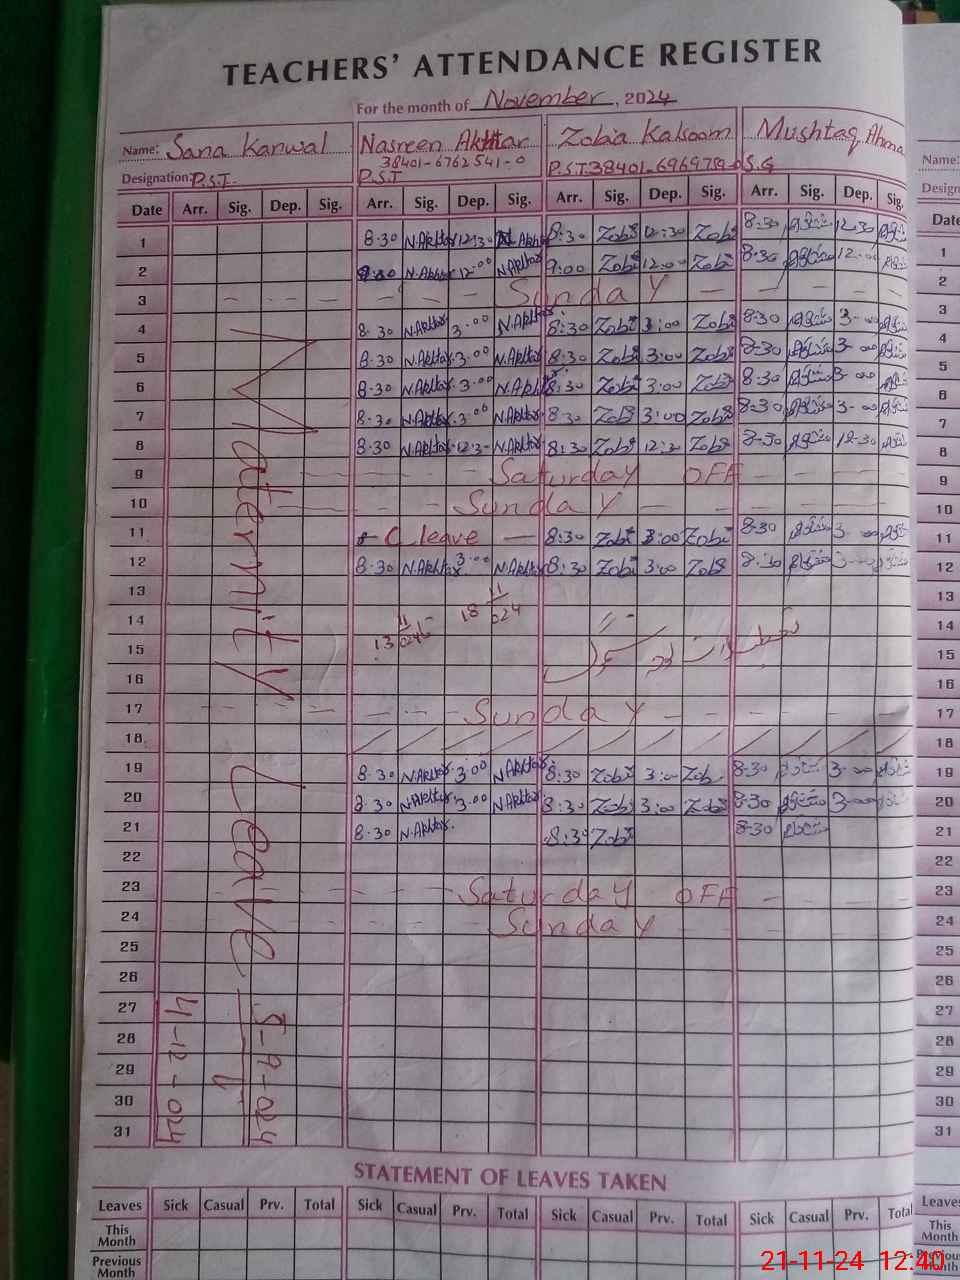 TEACHERS' ATTENDANCE REGISTER
For the month of November, 2024
Name: Sana Kanwal Nasreen Akhtar Zobia Kalsoom Mushtaq Ahma
38401-6762541-0
Designation: P.S.T. P.S.T P.S.T. 38401-6969759-0 S.G
Name:
Design
Date Arr. Sig. Dep. Sig. Arr. Sig. Dep. Sig. Arr. Sig. Dep. Sig. Arr. Sig. Dep. Sig. Date
1 8-30 N.Akhtar 12:30 N Akh 8:30 Zobi 12:30 Zobi 8-30 مشتاق 12-30 مشتاق 1
2 N.Akhtar 12-00 N.Akhtar 9:00 Zobi 12:00 Zobi 8-30 مشتاق 12-00 مشتاق 2
3 Sunday 3
4 8-30 N.Akhtar 3-00 N.Akhtar 8:30 Zobi 3:00 Zobi 8-30 مشتاق 3-00 مشتاق 4
5 8-30 N.Akhtar 3-00 N.Akhtar 8:30 Zobi 3:00 Zobi 8-30 مشتاق 3-00 مشتاق 5
6 8-30 N.Akhtar 3-00 N.Akhtar 8:30 Zobi 3:00 Zobi 8-30 مشتاق 3-00 مشتاق 6
7 8-30 N.Akhtar 3-00 N.Akhtar 8:30 Zobi 3:00 Zobi 8-30 مشتاق 3-00 مشتاق 7
8 8-30 N.Akhtar 12-3- N.Akhtar 8:30 Zobi 12:3 Zobi 8-30 مشتاق 12-30 مشتاق 8
9 Saturday OFF 9
10 Sunday 10
11 C leave 8:30 Zobi 3:00 Zobi 8-30 مشتاق 3-00 مشتاق 11
12 8-30 N.Akhtar 3-00 N.Akhtar 8:30 Zobi 3:00 Zobi 8-30 مشتاق 3-00 مشتاق 12
13 13
14 13 11 024 18 11 024 14
15 15
16 16
17 Sunday 17
18 18
19 8-30 N.Akhtar 3-00 N.Akhtar 8:30 Zobi 3:00 Zobi 8-30 مشتاق 3-00 مشتاق 19
20 8-30 N.Akhtar 3-00 N.Akhtar 8:30 Zobi 3:00 Zobi 8-30 مشتاق 3-00 مشتاق 20
21 8-30 N.Akhtar. 8:30 Zobi 8-30 مشتاق 21
22 22
23 Saturday OFF 23
24 Sunday 24
25 25
26 26
27 27
28 28
29 29
30 30
31 31
Maternity Leave
8-9-024
-12-024
STATEMENT OF LEAVES TAKEN
Leaves Sick Casual Prv. Total Sick Casual Prv. Total Sick Casual Prv. Total Sick Casual Prv. Total Leaves
This Month This Month
Previous Month Previous Month
21-11-24 12:40